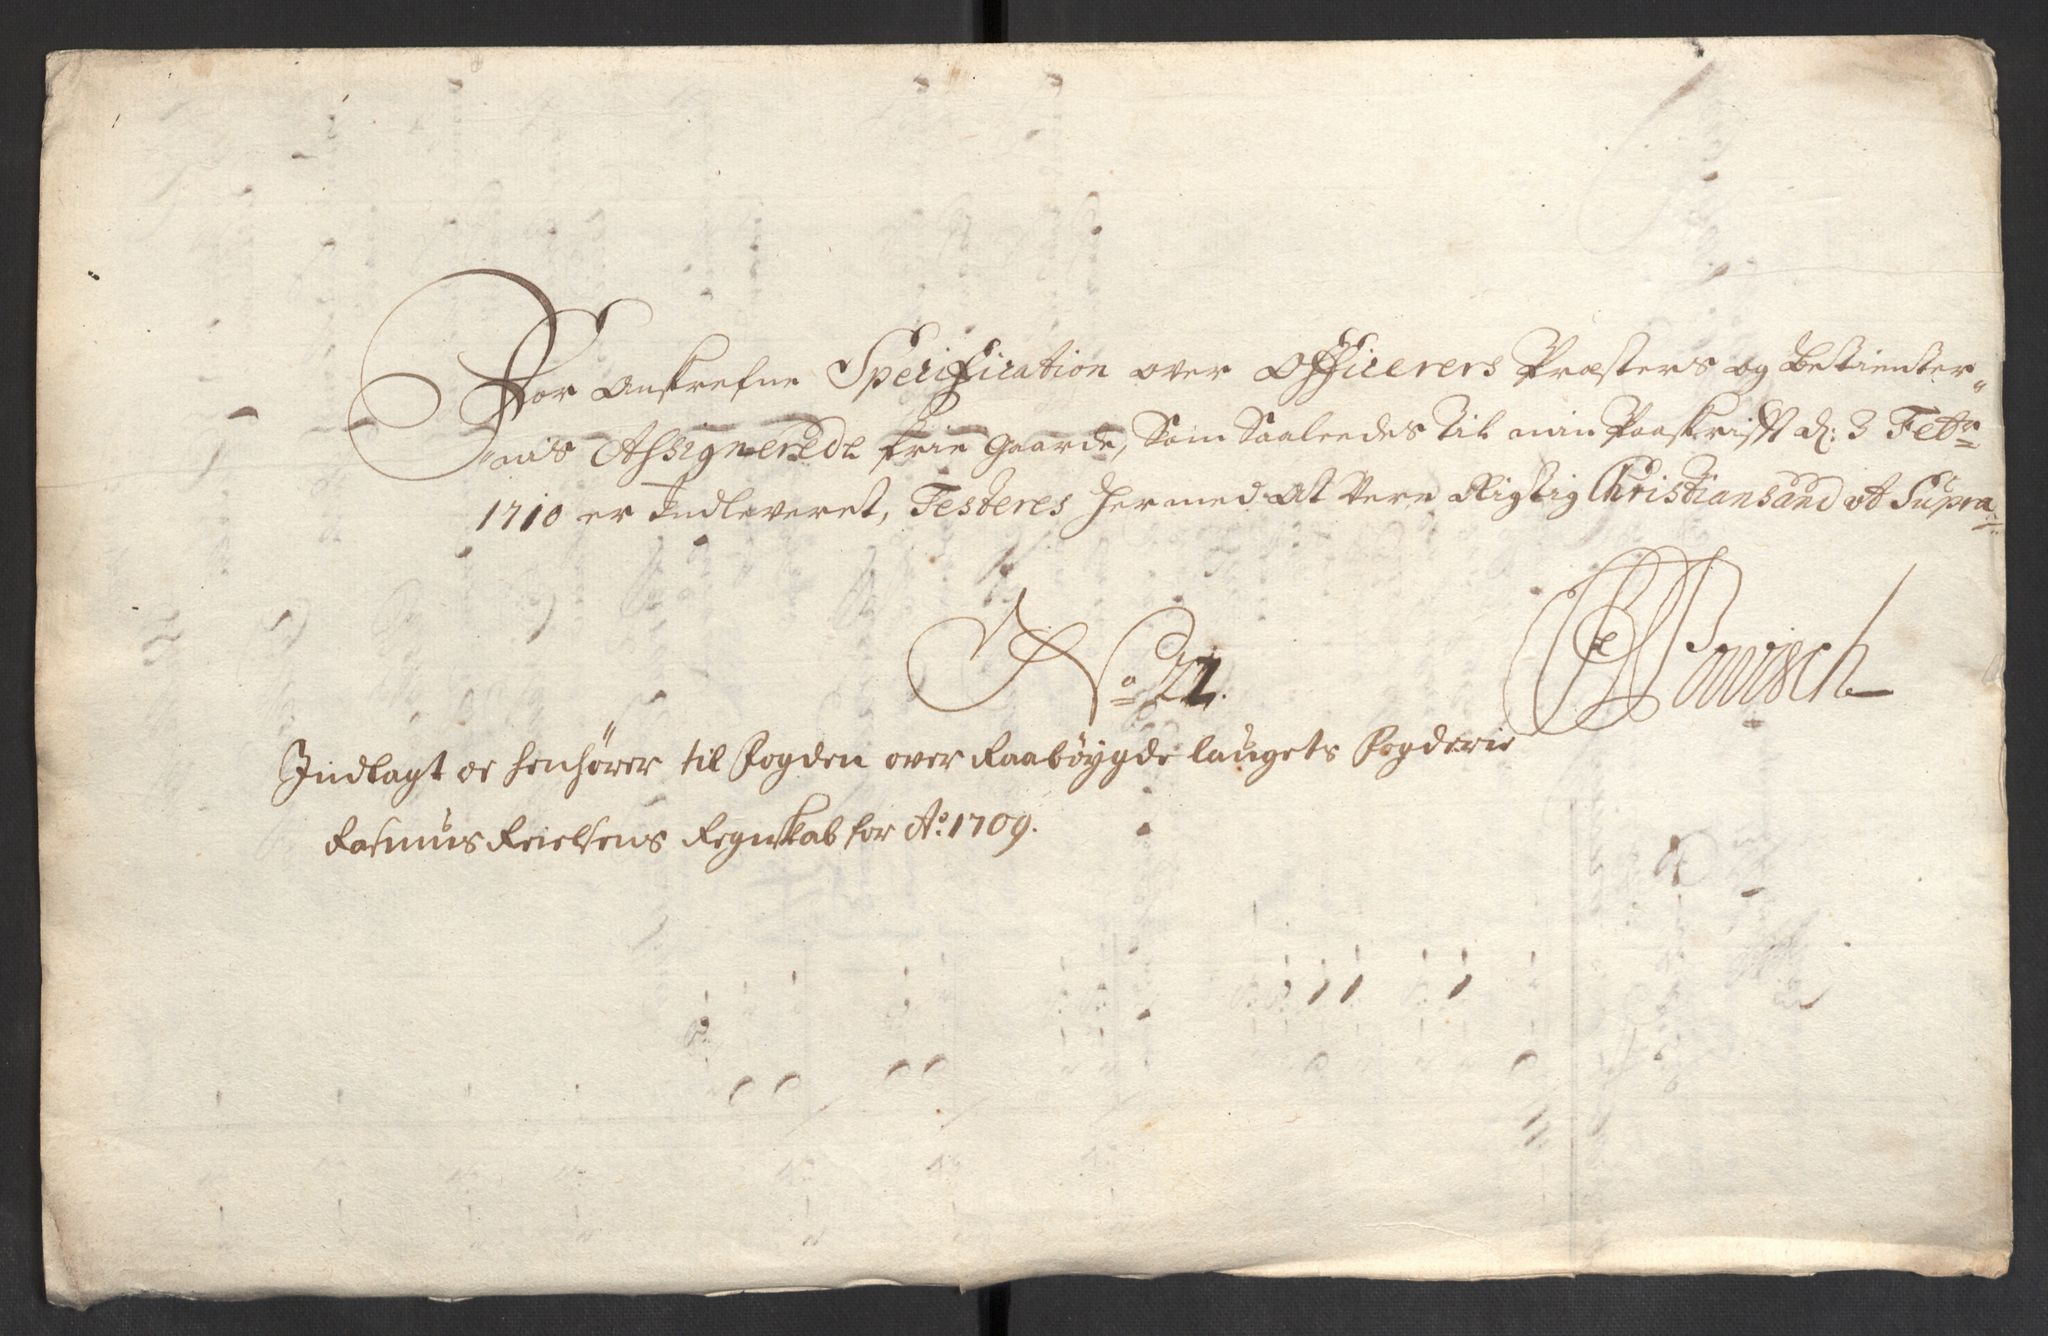 For anskrefne Specification over Officerers Præsters og betienter„
„nis Assignerede frie Gaarde, Som Saaleedes til min Paaskrifft d: 3 Febr
1710 er Indleveret, Testeres hermed at vere Rigtig Christiansand ut Supra
No 22.
Indlagt oc henhører til Fogden over Raabøygde laugets Fogderie
Rasmus Reielsens Regnskab for Ao: 1709.